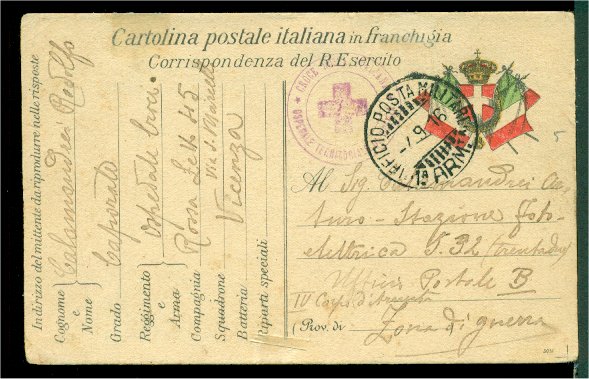 Cartolina postale italiana in franchigia
Corrispondenza del R. Esercito
Indirizzo del mittente da riprodurre nelle risposte
Cognome e Nome Calamandrei Rodolfo
Grado Caporale
Reggimento e Arma Ospedale Croce
Compagnia Rossa Letti 415
Squadrone Via S.
Batteria Vicenza
Riparti speciali
CROCE
OSPEDALE TERRITORIALE
UFFICIO POSTA MILITARE
1ª ARM
7.9.16
Al Sig. Calamandrei
turo - Stazione Foto-
elettrica T. 32 (trentadue)
Ufficio Postale B
IV Corpo d'Armata
(Prov. di Zona di guerra